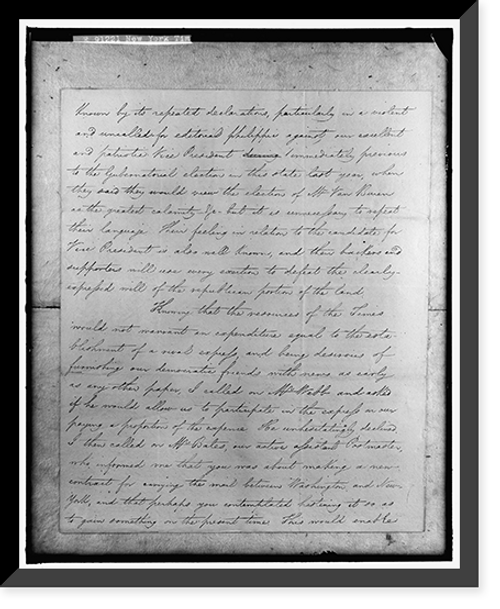 Known by its repeated declarations, particularly in a violent
and uncalled for editorial philippic against our excellent
and patriotic Vice President immediately previous
to the Gubernatorial election in this state last year, when
they said they would view the election of Mr Van Buren
as the greatest calamity &c. but it is unnecessary to repeat
their language. Their feeling in relation to the candidate for
Vice President is also well known, and their backers and
supporters will use every exertion to defeat the clearly-
expressed will of the republican portion of the land.
Knowing that the resources of the Times
would not warrant an expenditure equal to the esta-
blishment of a rival express, and being desirous of
furnishing our democratic friends with news as early
as any other paper, I called on Mr Webb and asked
if he would allow us to participate in the express on our
paying a proportion of the expence. He unhesitatingly declined.
I then called on Mr Bates, our active assistant Postmaster,
who informed me that you was about making a new
contract for carrying the mail between Washington and New-
York, and that perhaps you contemplated hastening it so as
to gain something on the present time. This would enable